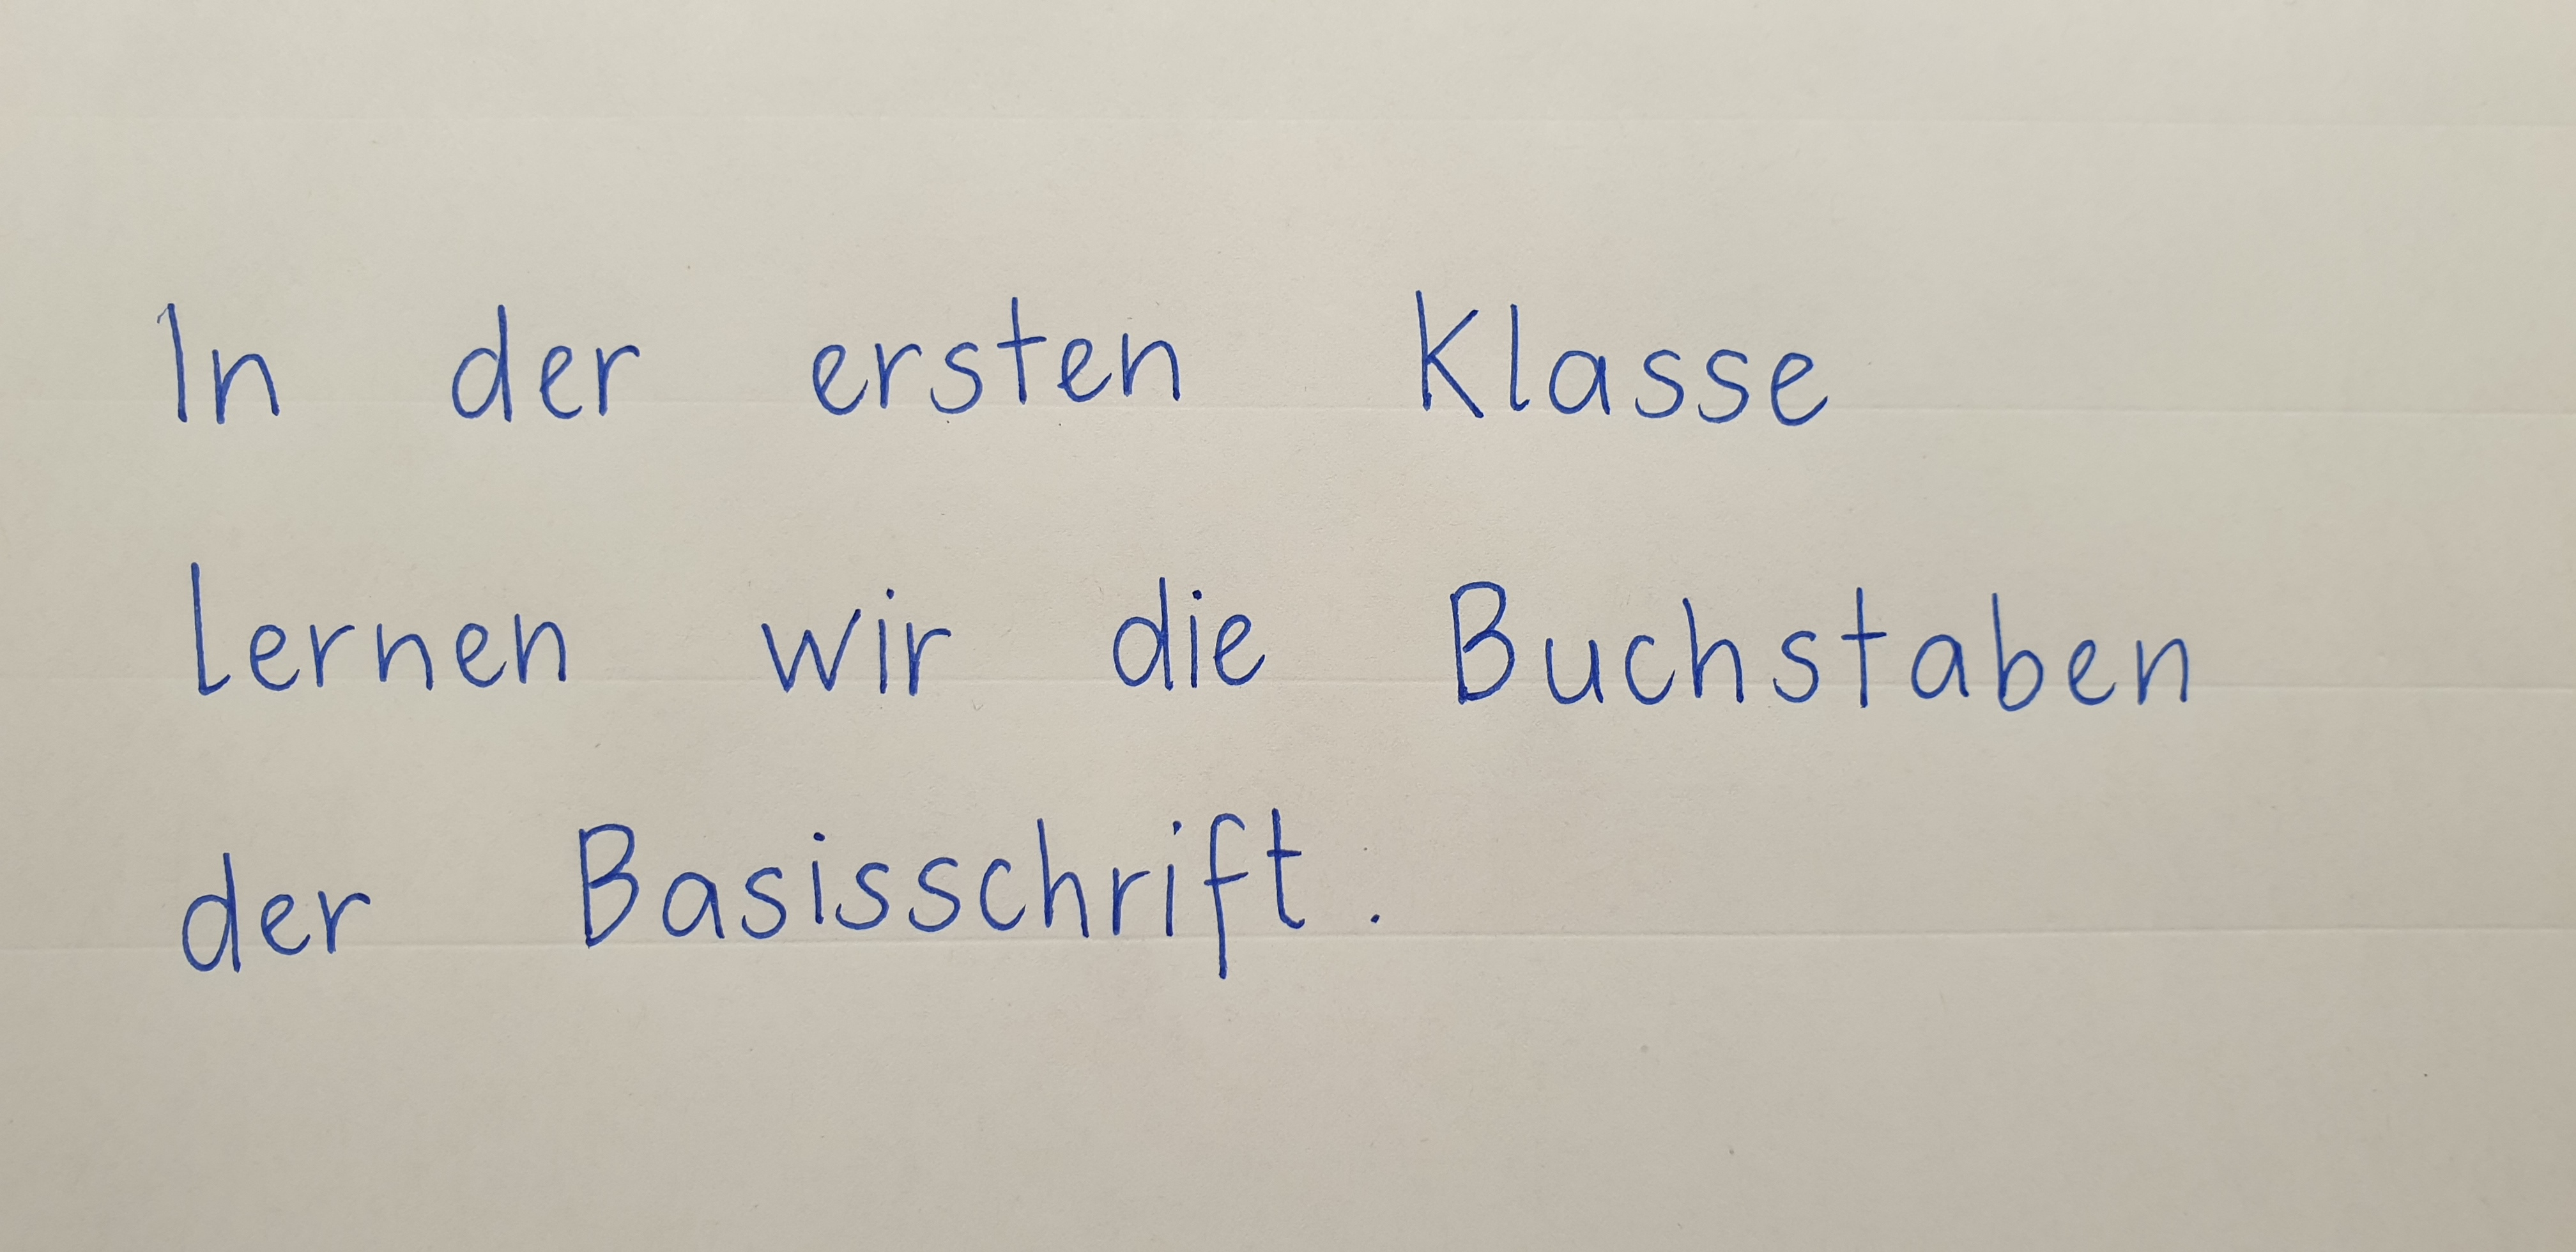 In der ersten Klasse
lernen wir die Buchstaben
der Basisschrift.